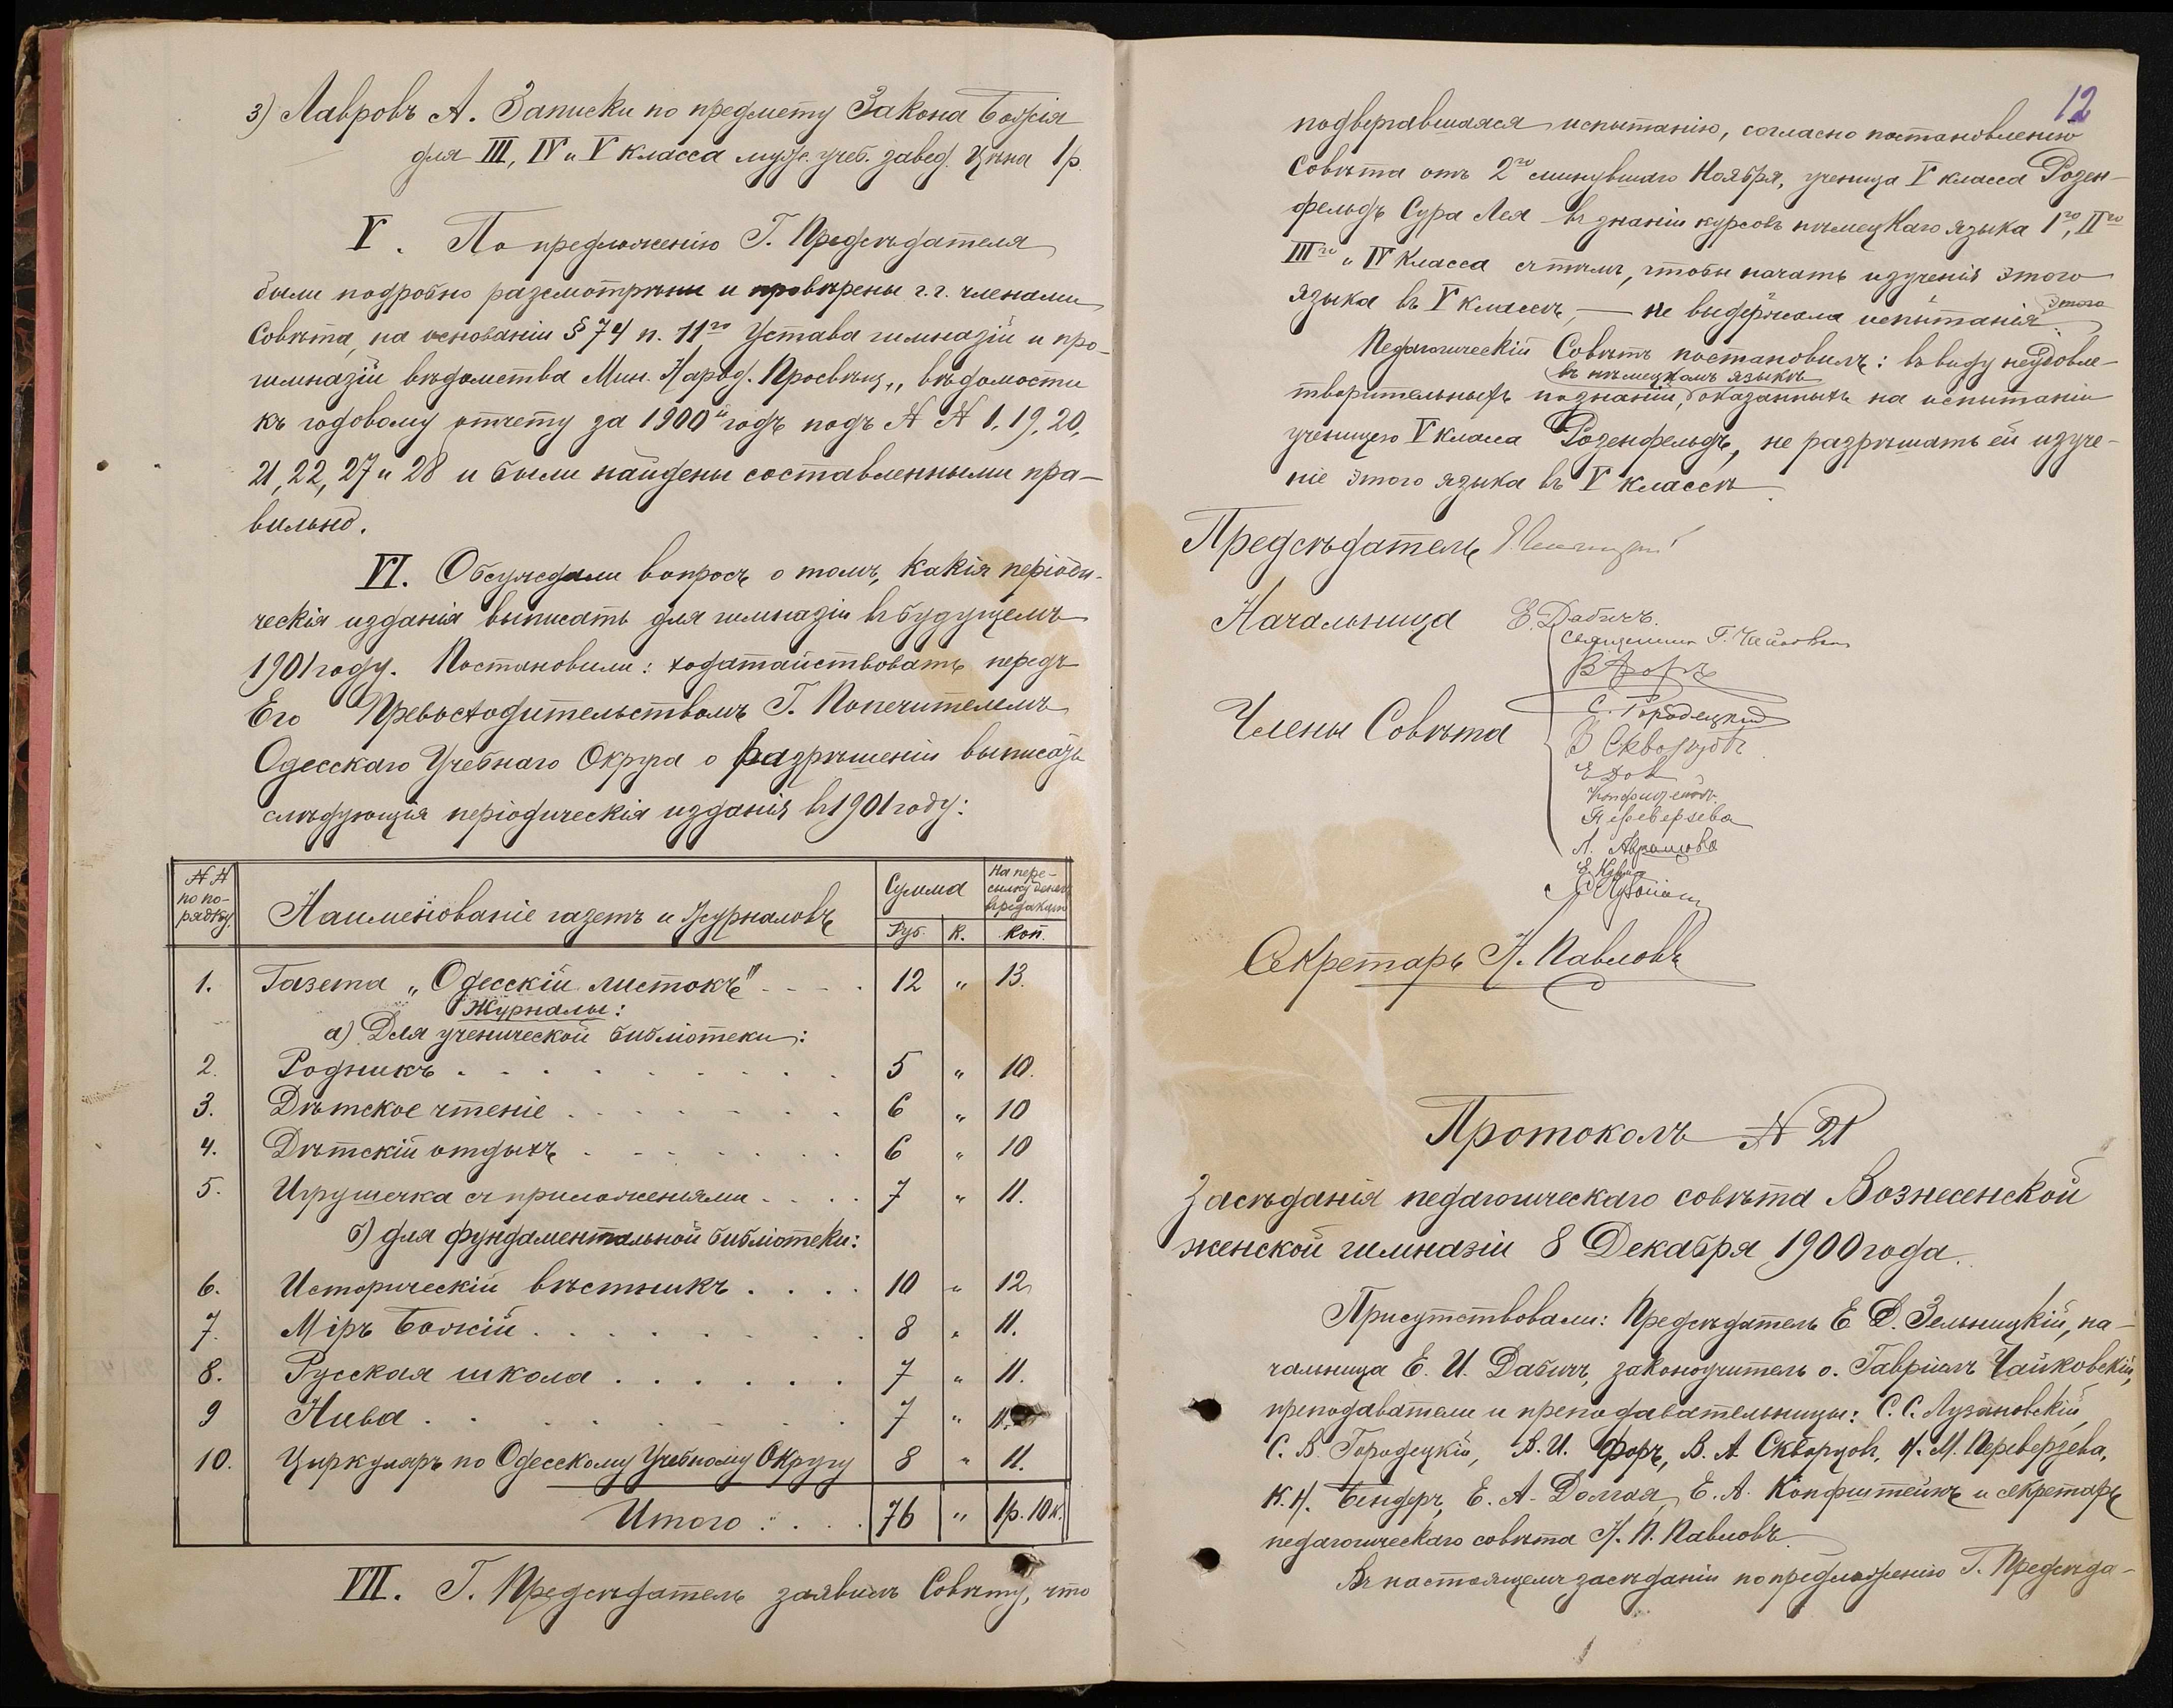 3) Лавровъ А. Записки по предмету Закона Божія
для III, IV и V класса мужс. учеб. завед. Цѣна 1 р.
V. По предложенію Г. Предсѣдателя
были подробно разсмотрѣны и провѣрены г.г. членами
Совѣта, на основаніи § 74 п. 11го Устава гимназій и про-
гимназій вѣдомства Мин. Народ. Просвѣщ., вѣдомости
къ годовому отчету за 1900й годъ подъ № № 1, 19, 20,
21, 22, 27 и 28 и были найдены составленными пра-
вильно.
VI. Обсуждали вопросъ о томъ, какія періоди-
ческія изданія выписать для гимназіи въ будущемъ
1901 году. Постановили: ходатайствовать передъ
Его Превосходительствомъ Г. Попечителемъ
Одесскаго Учебнаго Округа о разрѣшеніи выписать
слѣдующія періодическія изданія въ 1901 году:
№ № по по-рядку. Наименованіе газетъ и журналовъ Сумма Руб. К. На пере-сылку денегъ въ редакцію Коп.
1. Газета „Одесскій листокъ" . . . . 12 „ 13.
Журналы:
а) Для ученической библіотеки:
2. Родникъ . . . . . . . . 5 „ 10.
3. Дѣтское чтеніе . . . . . . . 6 „ 10
4. Дѣтскій отдыхъ . . . . . . . 6 „ 10
5. Игрушечка съ приложеніями . . . . 7 „ 11.
б) для фундаментальной библіотеки:
6. Историческій вѣстникъ . . . . 10 „ 12
7. Міръ Божій . . . . . . . . 8 „ 11.
8. Русская школа . . . . . . 7 „ 11.
9 Нива . . . . . . . . 7 „ 11.
10. Циркуляръ по Одесскому Учебному Округу 8 „ 11.
Итого : . . . 76 „ 1р. 10 к.
VII. Г. Предсѣдатель заявилъ Совѣту, что
12
подвергавшаяся испытанію, согласно постановленію
Совѣта отъ 2го минувшаго Ноября, ученица V класса Розен-
фельдъ Сура Лея въ знаніи курсовъ нѣмецкаго языка Iго, IIго
IIIго и IV класса съ тѣмъ, чтобы начать изученія этого
языка въ V классѣ, — не выдержала испытанія этого.
Педагогическій Совѣтъ постановилъ: въ виду неудовле-
въ нѣмецкомъ языкѣ
творительныхъ познаній, оказанныхъ на испытаніи
ученицею V класса Розенфельдъ, не разрѣшать ей изуче-
ніе этого языка въ V классѣ.
Предсѣдатель
Начальница Е. Дабичъ.
Священникъ Г. Чайковскій
В Форъ
С. Городецкій
Члены Совѣта
В Скворцовъ
Е Дол
Конфиштейнъ.
Переверзева
Л. Аврамова
Секретарь Н. Павловъ
Протоколъ № 21
Засѣданія педагогическаго совѣта Вознесенской
женской гимназіи 8 Декабря 1900 года.
Присутствовали: Предсѣдатель Е. Д. Зельницкій, на-
чальница Е. И. Дабичъ, законоучитель о. Гавріилъ Чайковскій,
преподаватели и преподавательницы: С. С. Лузановскій,
С. В. Городецкій, В. И. Форъ, В. А. Скворцовъ, Н. М. Переверзева,
К. Н. Бендеръ, Е. А. Долгая, Е. А. Конфиштейнъ и секретарь
педагогическаго совѣта Н. П. Павловъ.
Въ настоящемъ засѣданіи по предложенію Г. Предсѣда-